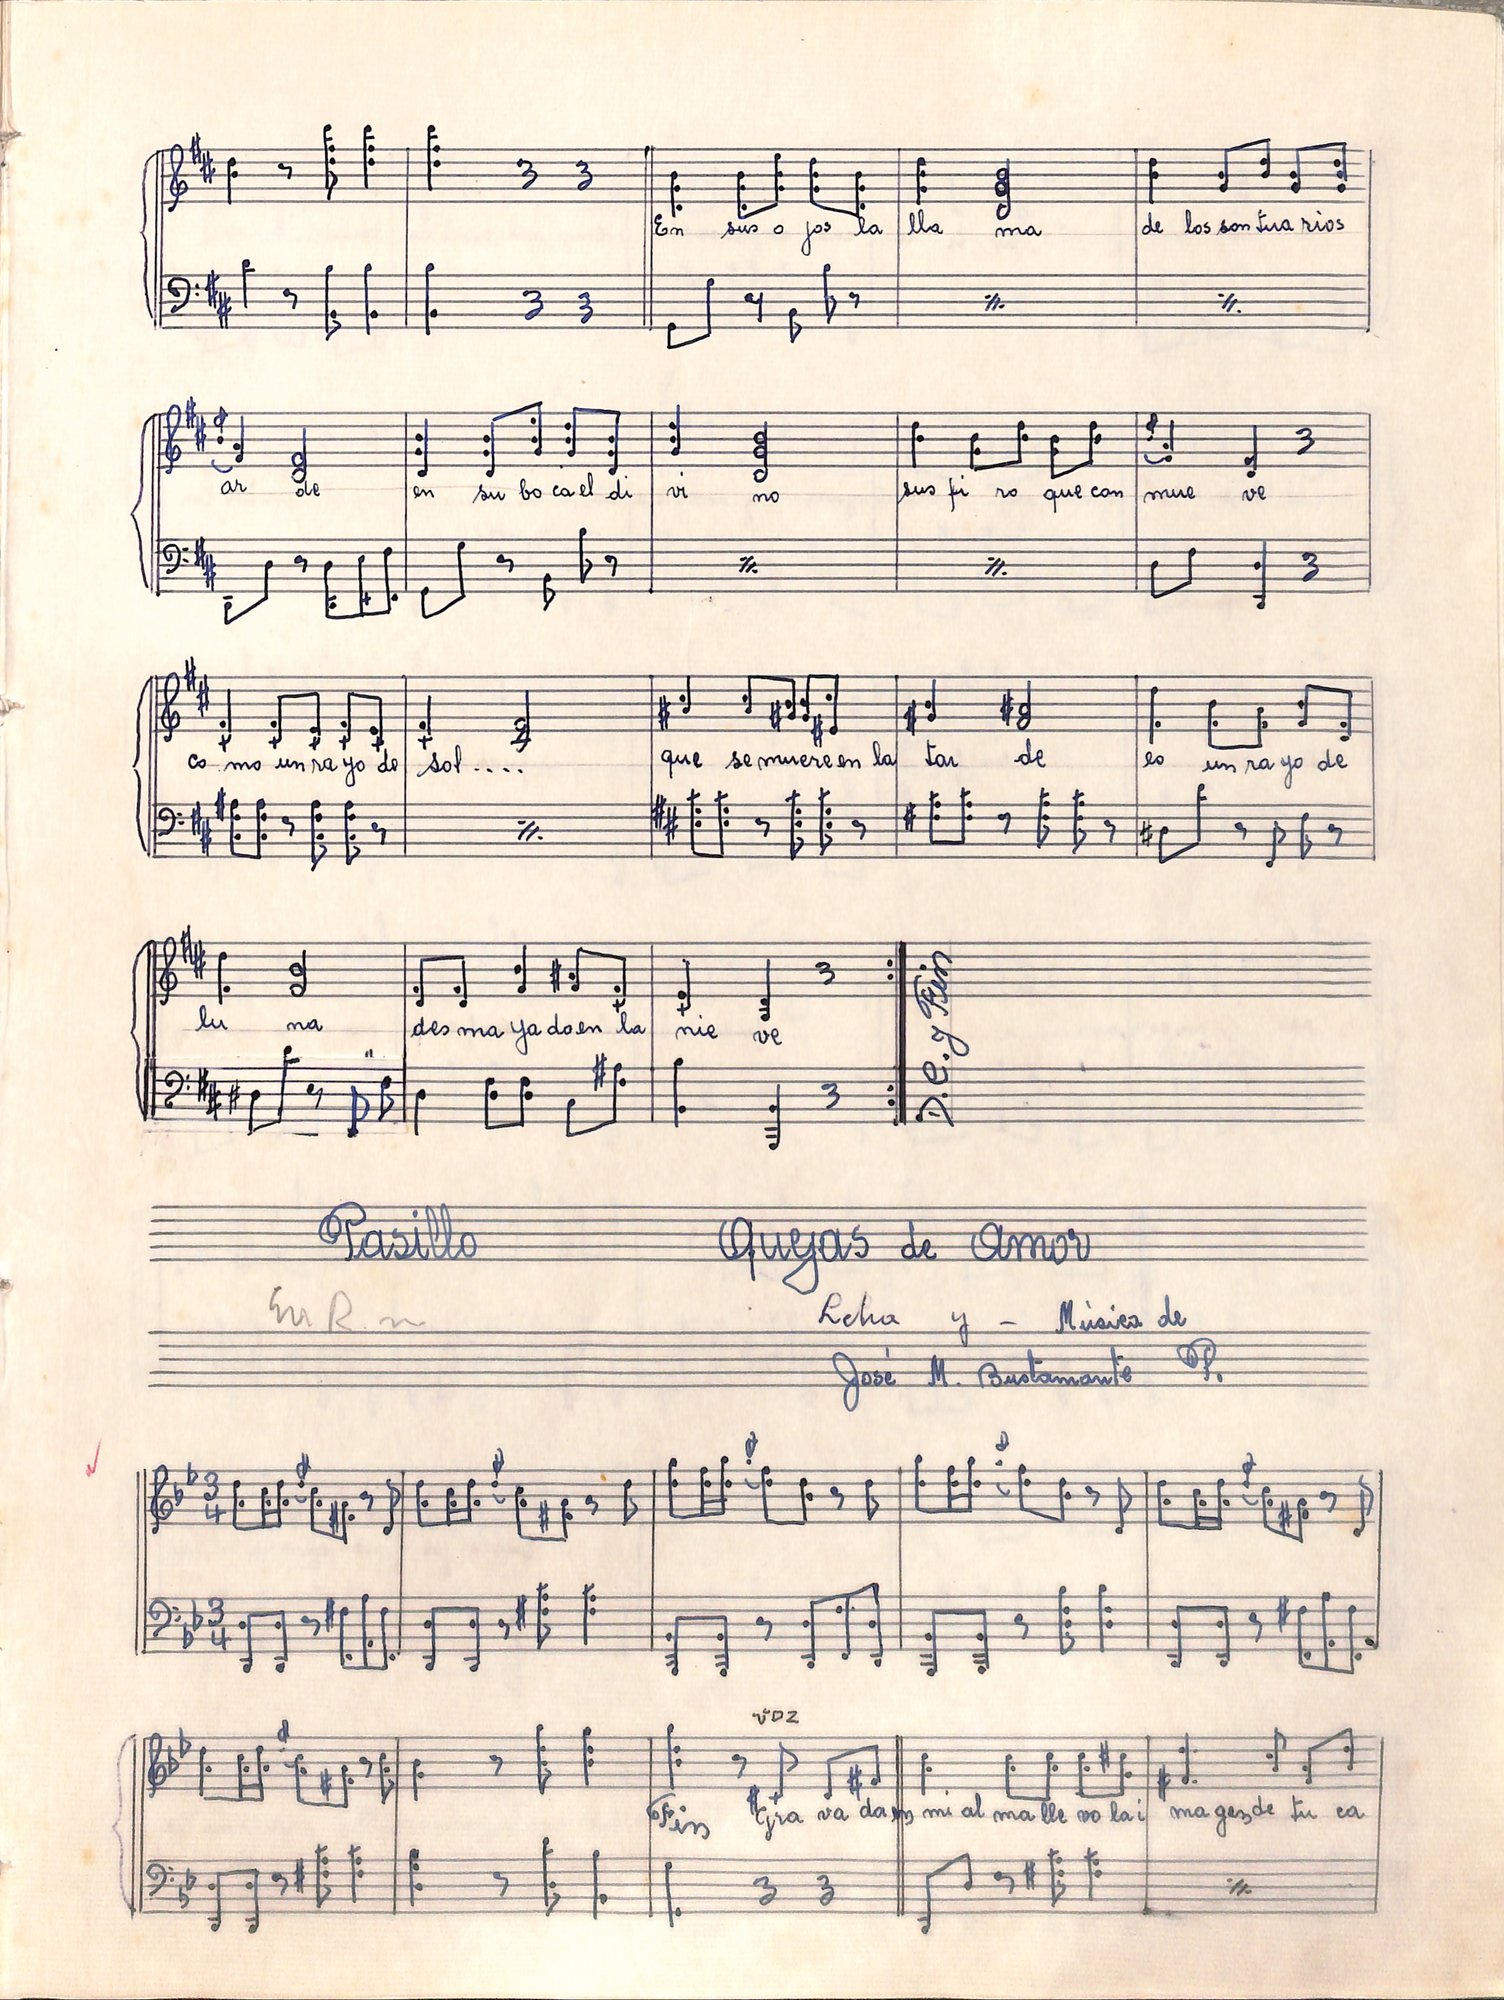 En sus o jos la lla ma de los son tua rios
ar de en su bo ca el di vi no sus pi ro que con mue ve
co mo un ra yo de sol.... que se muere en la tar de es un ra yo de
lu na des ma ya do en la nie ve D.C. y Fin
Pasillo Quejas de Amor
y - Música de
José M. Bustamante P.
3 4
3 4
voz
Fin Gra va da en mi al ma lle vo la i ma gen de tu ca